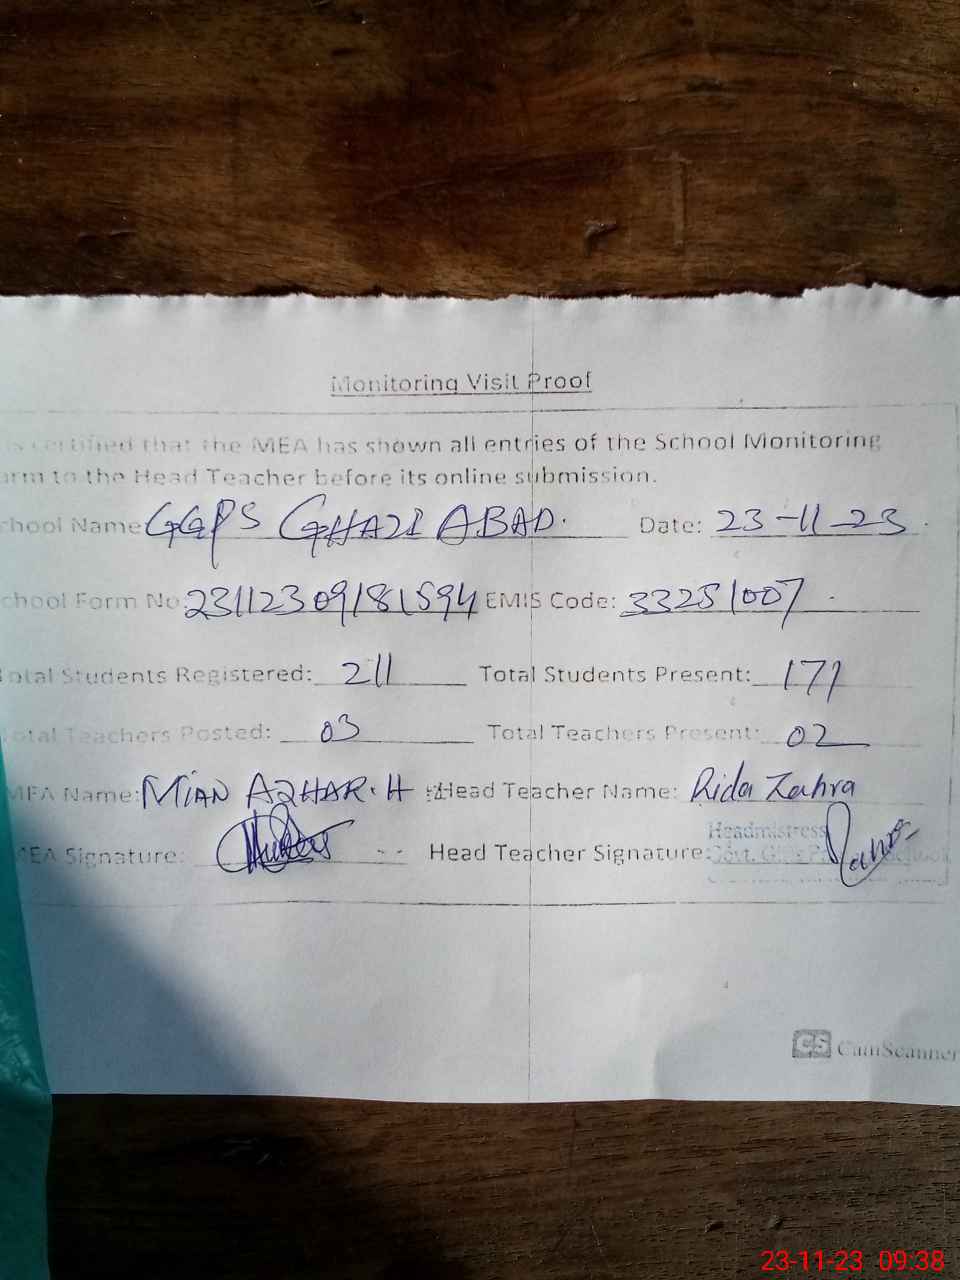 Monitoring Visit Proof
is certified that the MEA has shown all entries of the School Monitoring
orm to the Head Teacher before its online submission.
chool Name GGPS GHAZI ABAD. Date: 23-11-23
chool Form No: 23112309181594 EMIS Code: 33251007
otal Students Registered: 211 Total Students Present: 171
otal Teachers Posted: 03 Total Teachers Present: 02
MEA Name: MIAN AZHAR.H Head Teacher Name: Rida Zahra
Headmistress
MEA Signature: Head Teacher Signature: Govt. Girls
CS CamScanner
23-11-23 09:38